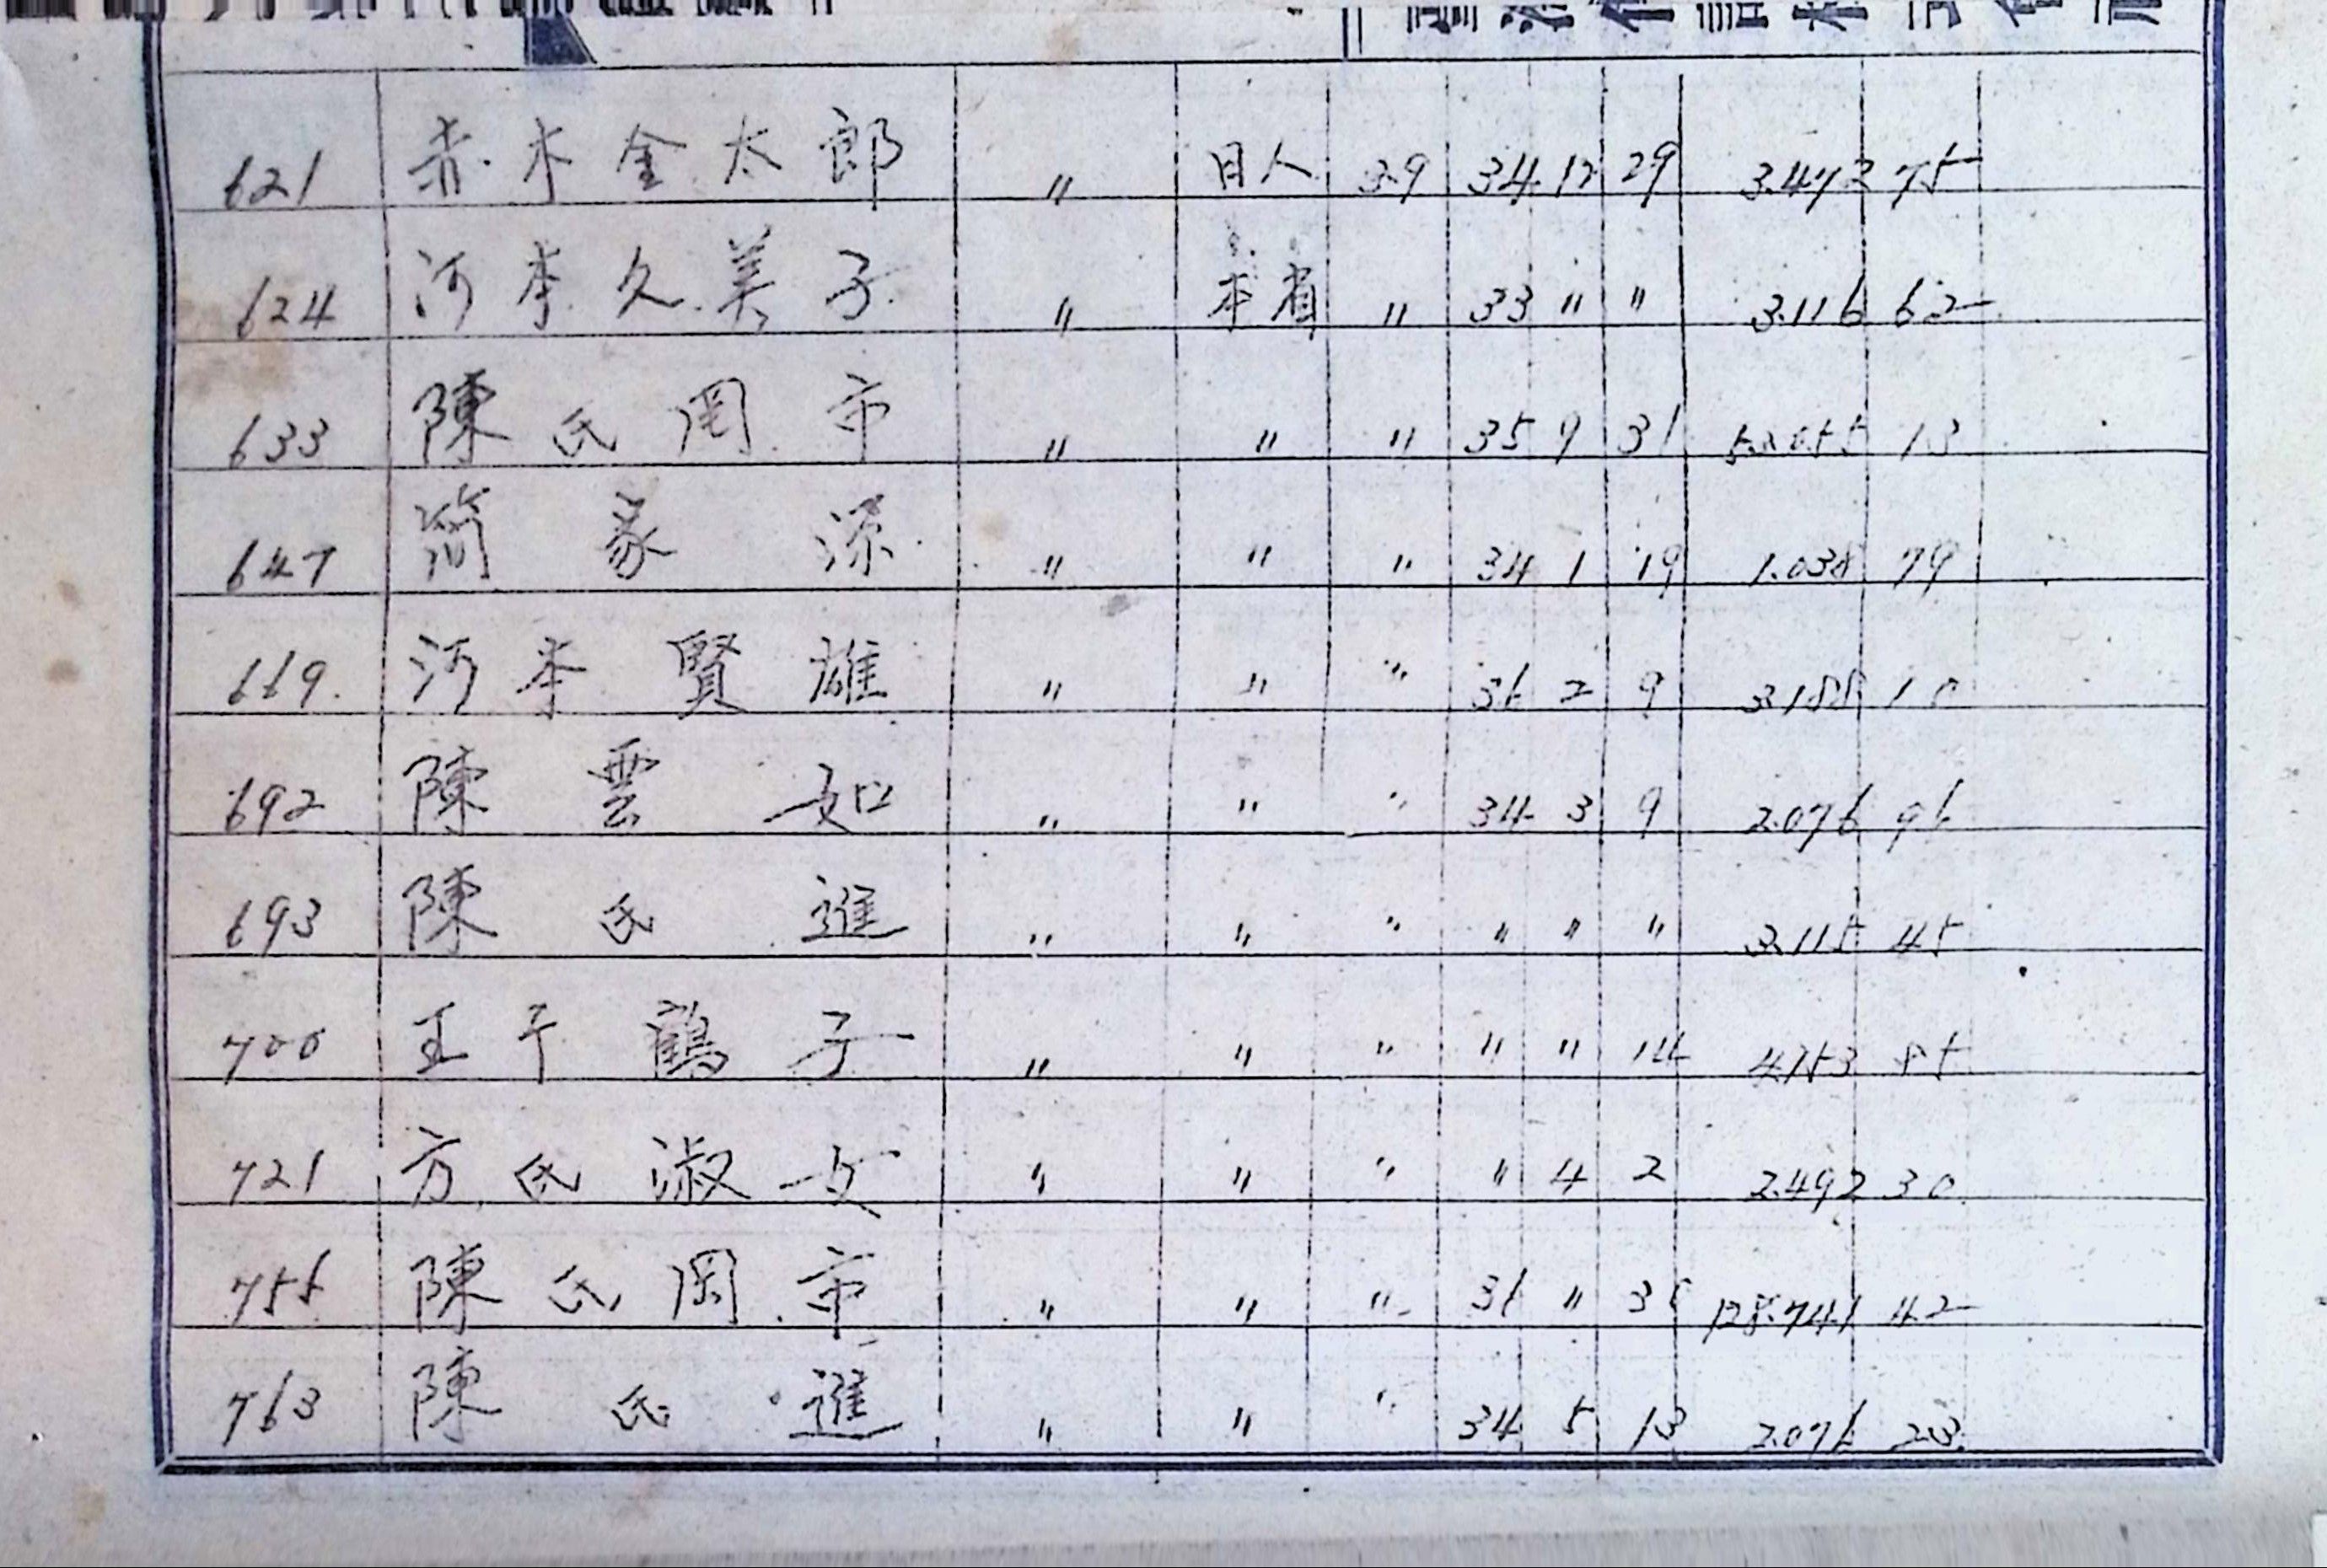 621 赤木金太郎 〃 日人 39 34 12 29 3.472 75
624 河本久美子 〃 本省 〃 33 〃 〃 3.116 62
633 陳氏罔市 〃 〃 〃 35 9 31 13
647 簡 添 〃 〃 〃 34 1 19 1.038 79
669 河本賢雄 〃 〃 〃 36 2 9 3.188 10
692 陳雲如 〃 〃 〃 34 3 9 2.076 96
693 陳氏進 〃 〃 〃 〃 〃 〃 3.115 45
700 王子鶴子 〃 〃 〃 〃 〃 14 4.153 85
721 方氏淑女 〃 〃 〃 〃 4 2 2.492 30
756 陳氏罔市 〃 〃 〃 36 〃 128.741 42
763 陳氏進 〃 〃 〃 34 5 13 2.076 23